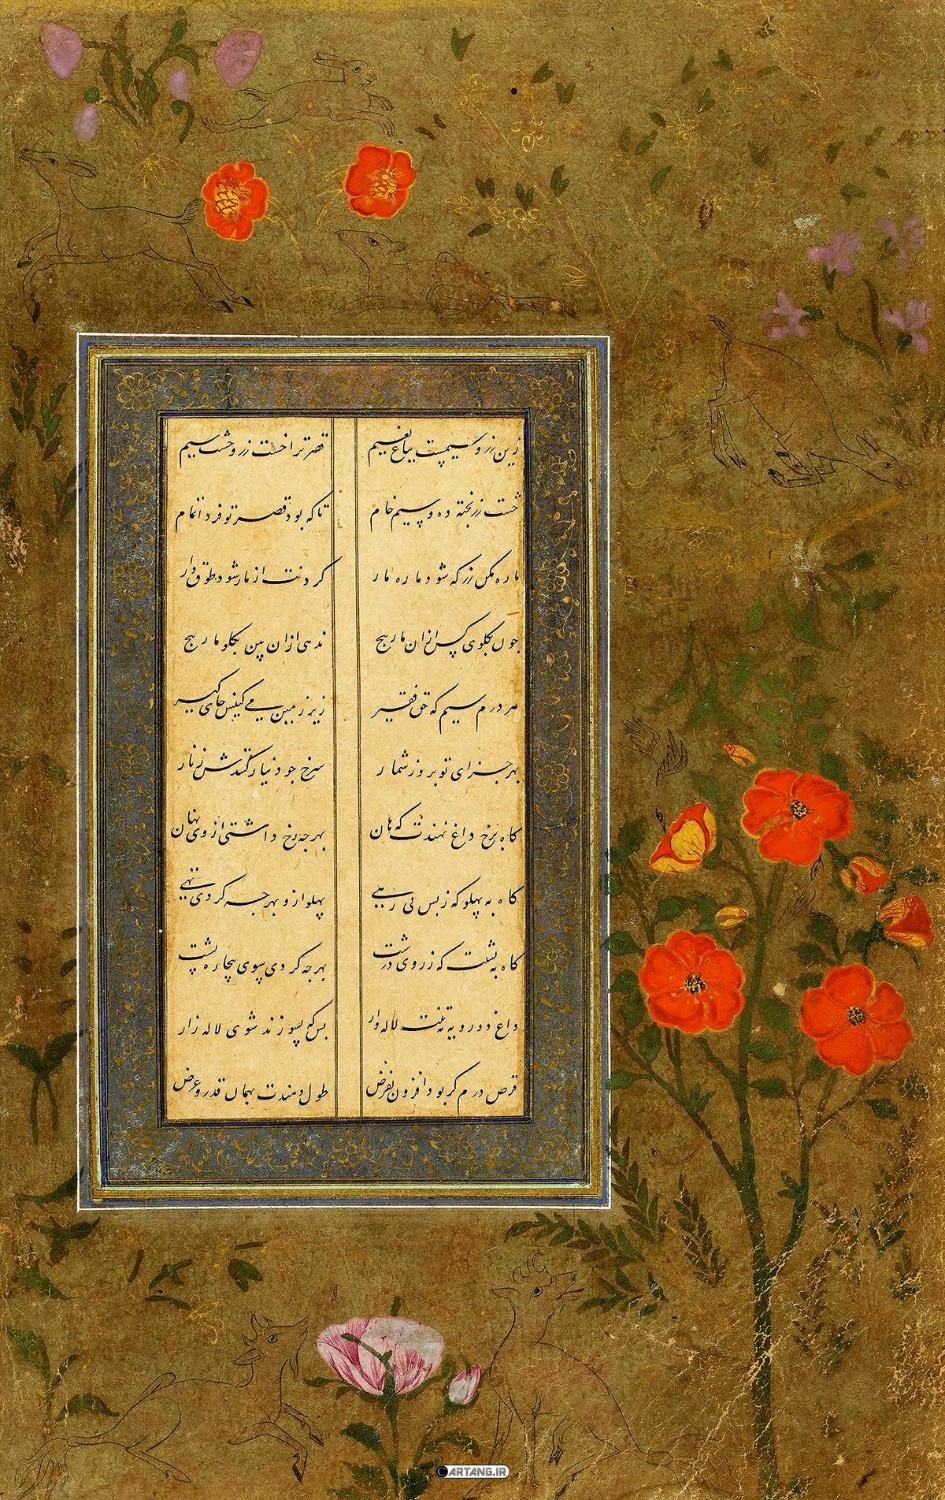 زین زر و سیمت بباغ نعیم قصر ترا خشت زر و خشت سیم
خشت زر پخته ده و سیم خام تا که بود قصر تو فردا تمام
یاره مکن زر که شود ماره مار گردنت از مار شود طوق دار
چون بکلوی کس ازان مار پیچ ندهی ازان بکلو مار پیچ
هر درم سیم که حق فقیر زیر زمین میکنیش جای گیر
بهر جزای تو بروز شمار سرخ جو دینار کنندش ز نار
گاه برخ داغ نهندت که هان بهر چه رخ داشتی از وی نهان
گاه به پهلو که ز بس رهی پهلو ازو بهر چه کردی تهی
گاه به پشتت که ز روی درشت بهر چه کردی سوی بیچاره پشت
داغ دو رویه تنت لاله وار بس که بسوزند شوی لاله زار
قرص درم گر بود افزون بفرض طول دهندت بهمان قدر و عرض
ARTANG.IR